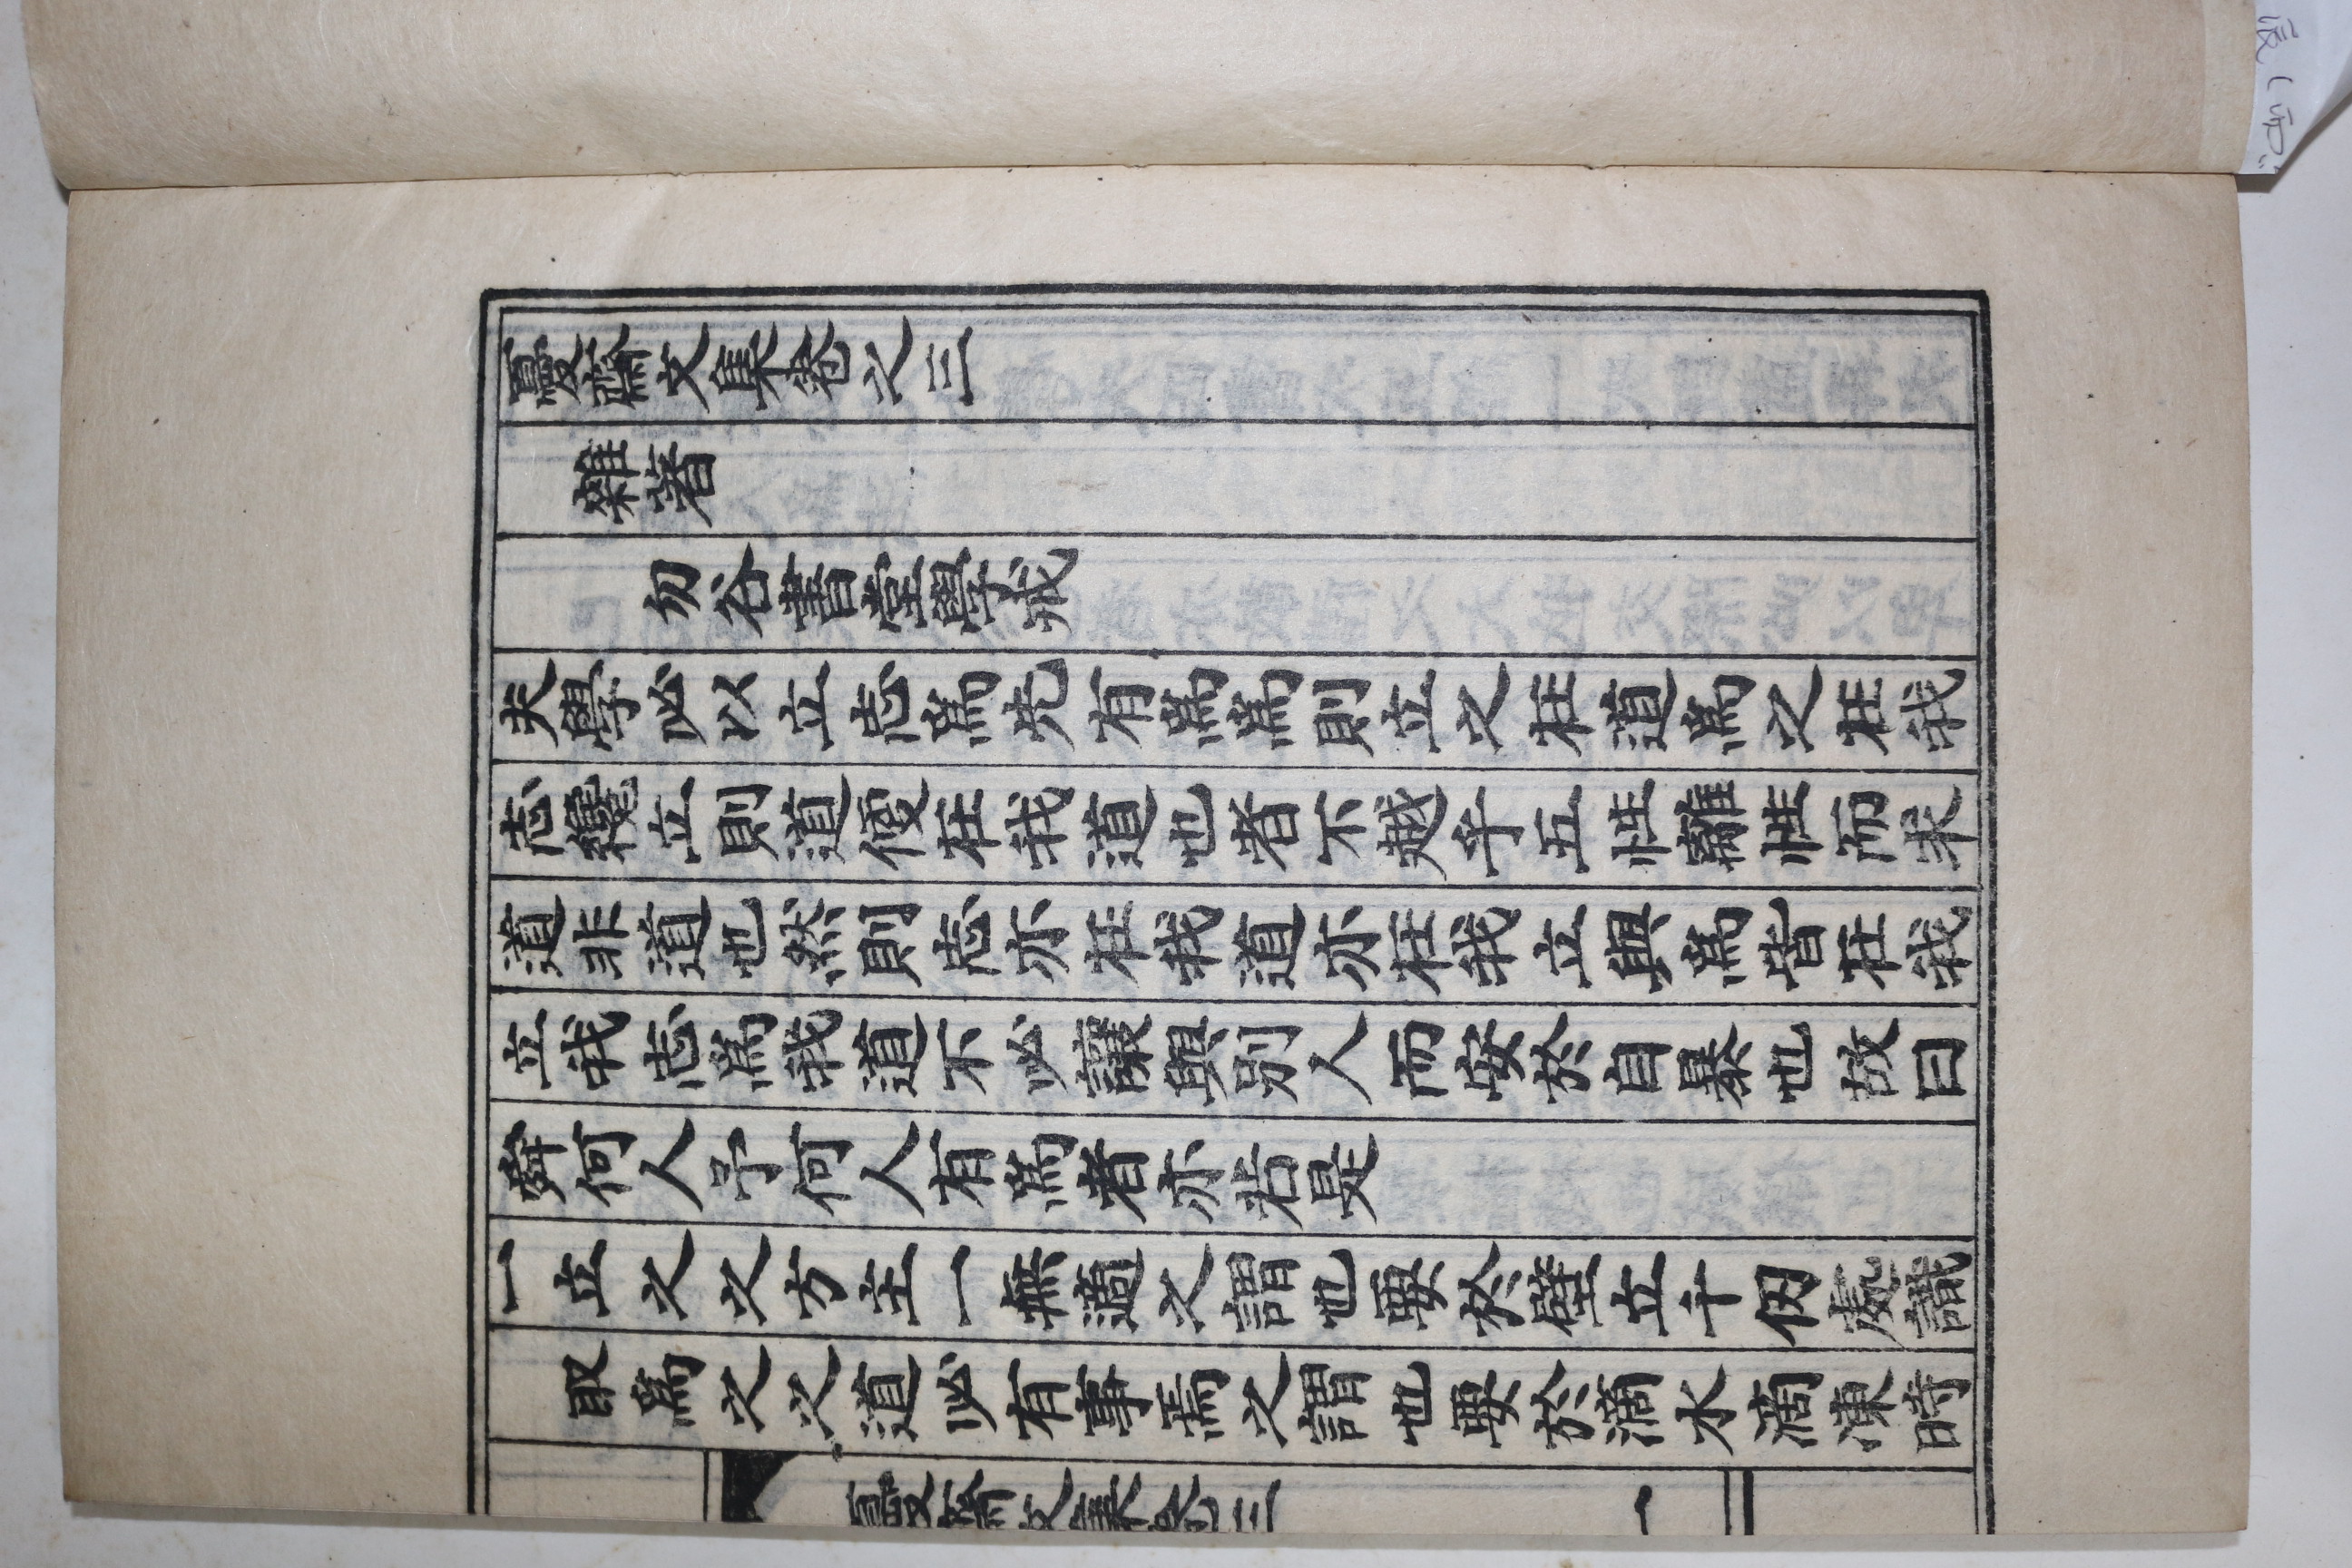 憂齋文集卷之三
雜著
勿谷書堂學戒
夫學必以立志爲先有爲爲則立之在道爲之在我
志纔立則道便在我道也者不越乎五性離性而求
道非道也然則志亦在我道亦在我立與爲皆在我
立我志爲我道不必讓與別人而安於自暴也故曰
舜何人予何人有爲者亦若是
一立之之方主一無適之謂也要於壁立千仞處識
取爲之之道必有事焉之謂也要於滴水滴凍時
憂齋文集卷三
一